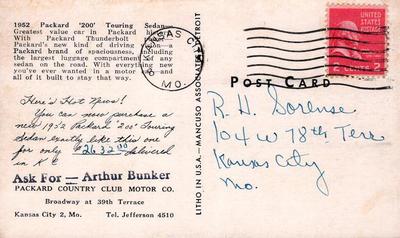 1952 Packard '200' Touring Sedan—
Greatest value car in Packard history.
With Packard Thunderbolt
Packard's new kind of driving
Packard brand of spaciousness, including
the largest luggage compartment of any
sedan on the road. With everything new
you've ever wanted in a motor car—and
all of it built to stay that way.
Here's Hot News!
You can now purchase a
new 1952 Packard "200" Touring
Sedan exactly like this one
for only $2632.00 delivered
in K C
Ask For — Arthur Bunker
PACKARD COUNTRY CLUB MOTOR CO.
Broadway at 39th Terrace
Kansas City 2, Mo. Tel. Jefferson 4510
LITHO IN U.S.A.—MANCUSO ASSOCIATES, DETROIT
KANSAS CITY
MO.
UNITED STATES POSTAGE
2 CENTS 2
POST CARD
R. H. Sorense
104 W 78th Terr
Kansas City
Mo.